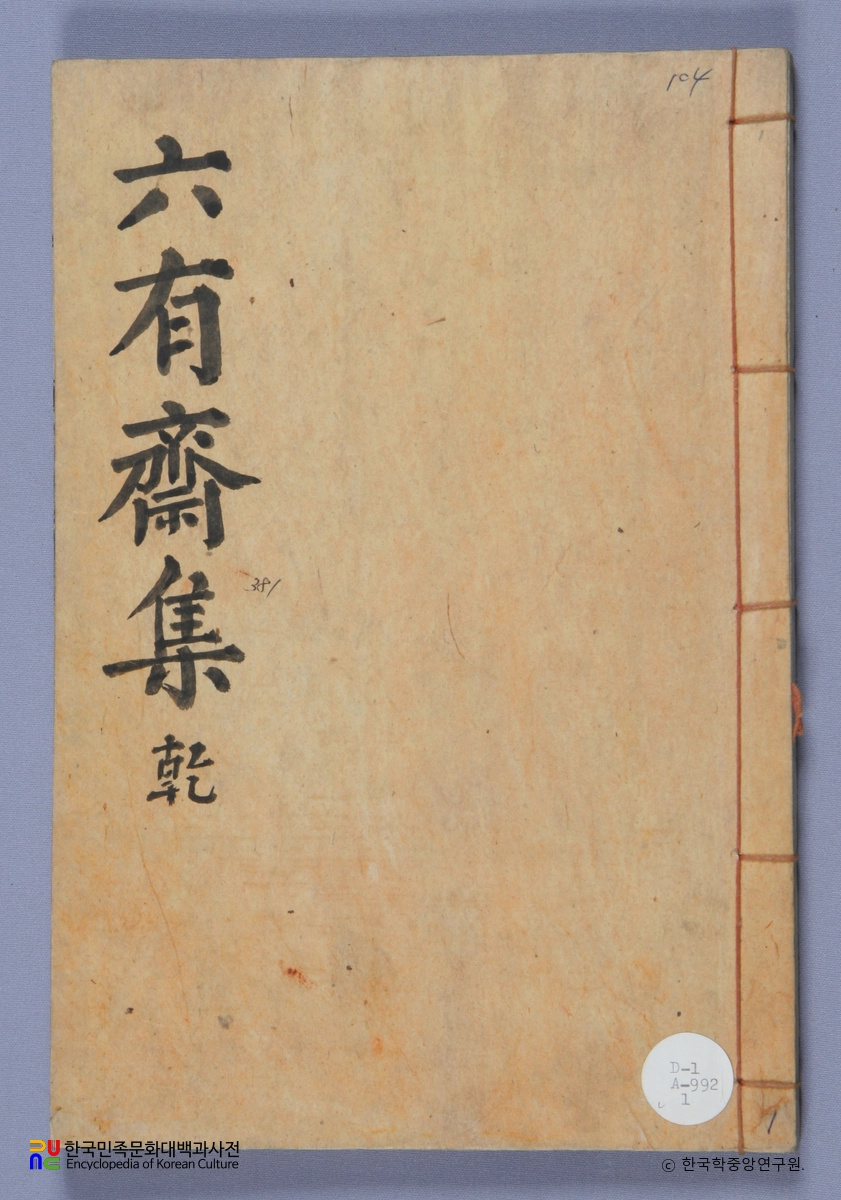 104
六有齋集 乾
381
D-1
A-992
1
1
한국민족문화대백과사전
Encyclopedia of Korean Culture
ⓒ 한국학중앙연구원.